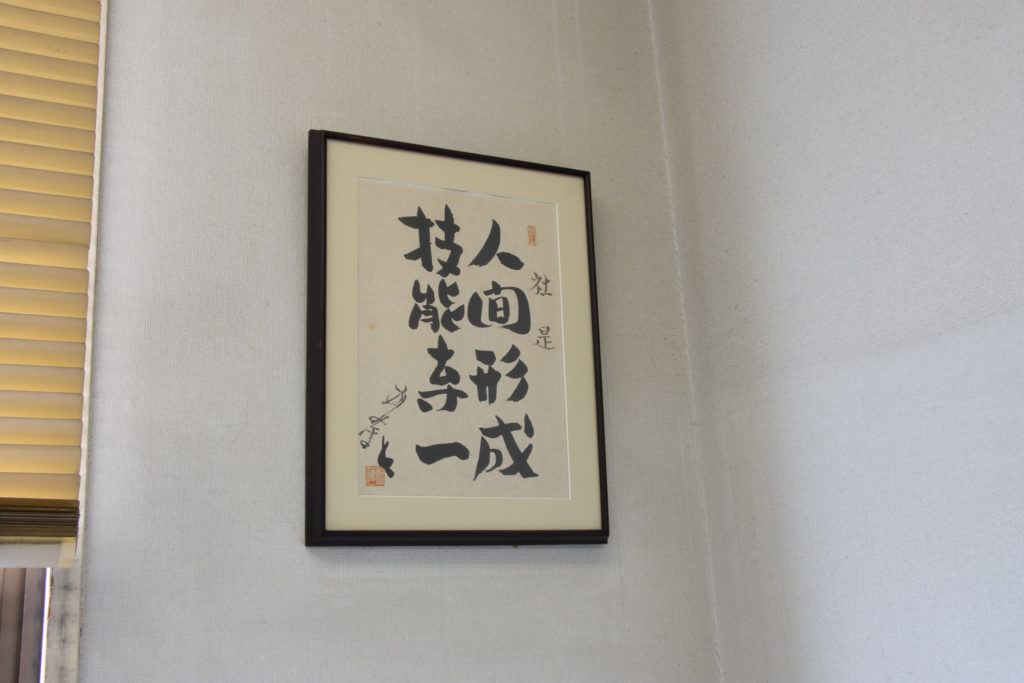 社是
人間形成
技能第一